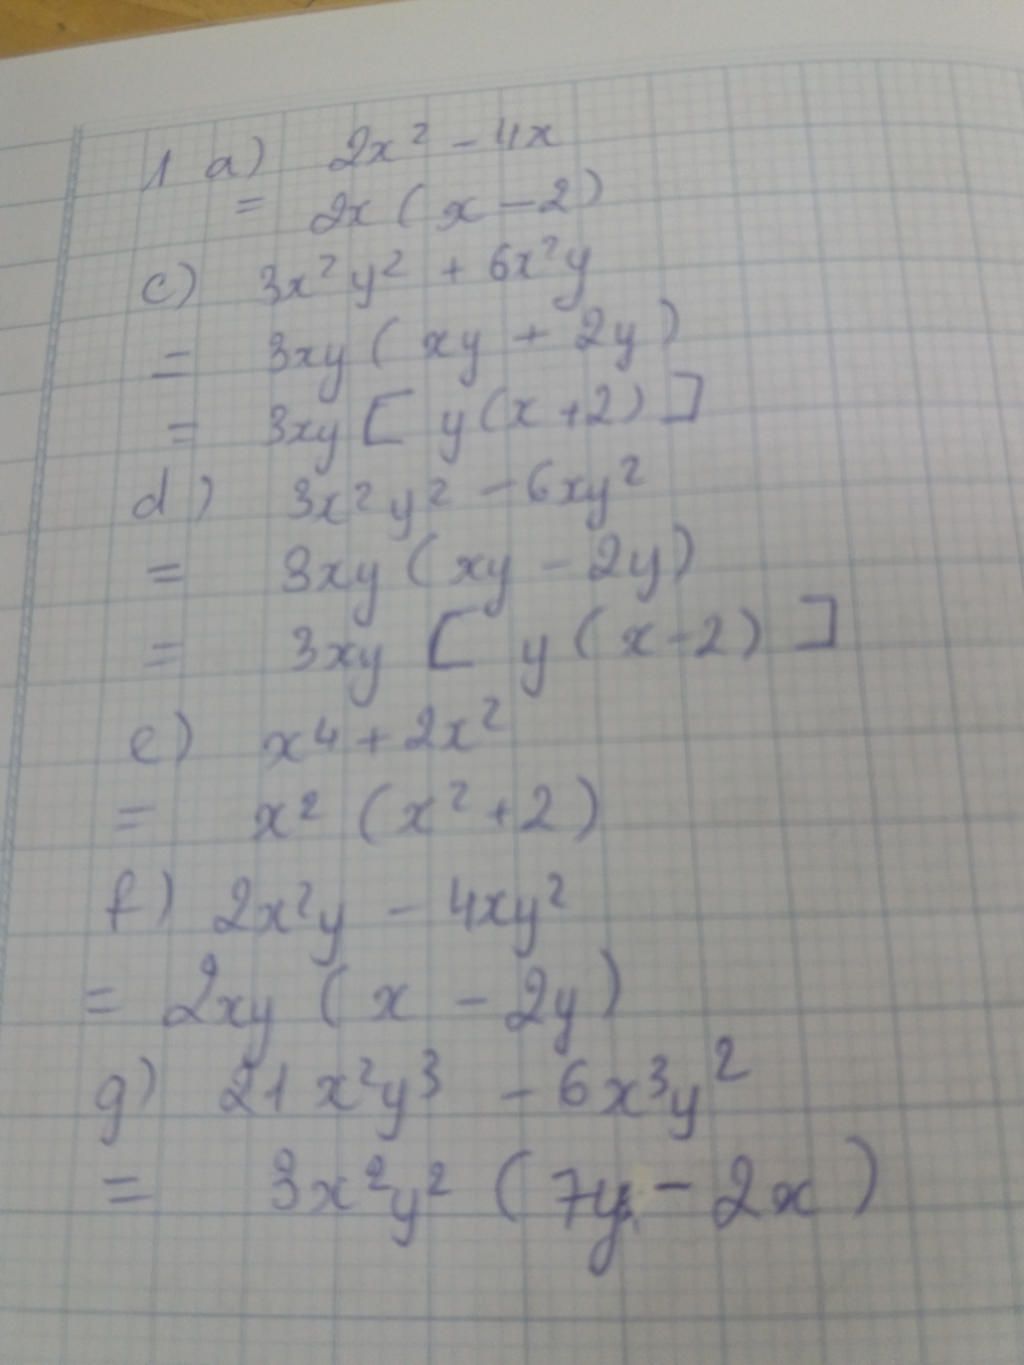 1 a) 2x² - 4x
= 2x ( x - 2)
c) 3x²y² + 6x²y
= 3xy ( xy + 2y)
= 3xy [ y(x+2) ]
d) 3x²y² - 6xy²
= 3xy (xy - 2y)
= 3xy [ y (x-2) ]
e) x4 + 2x²
= x² (x² + 2)
f) 2x²y - 4xy²
= 2xy ( x - 2y)
g) 21x²y³ - 6x³y²
= 3x²y² ( 7y - 2x )